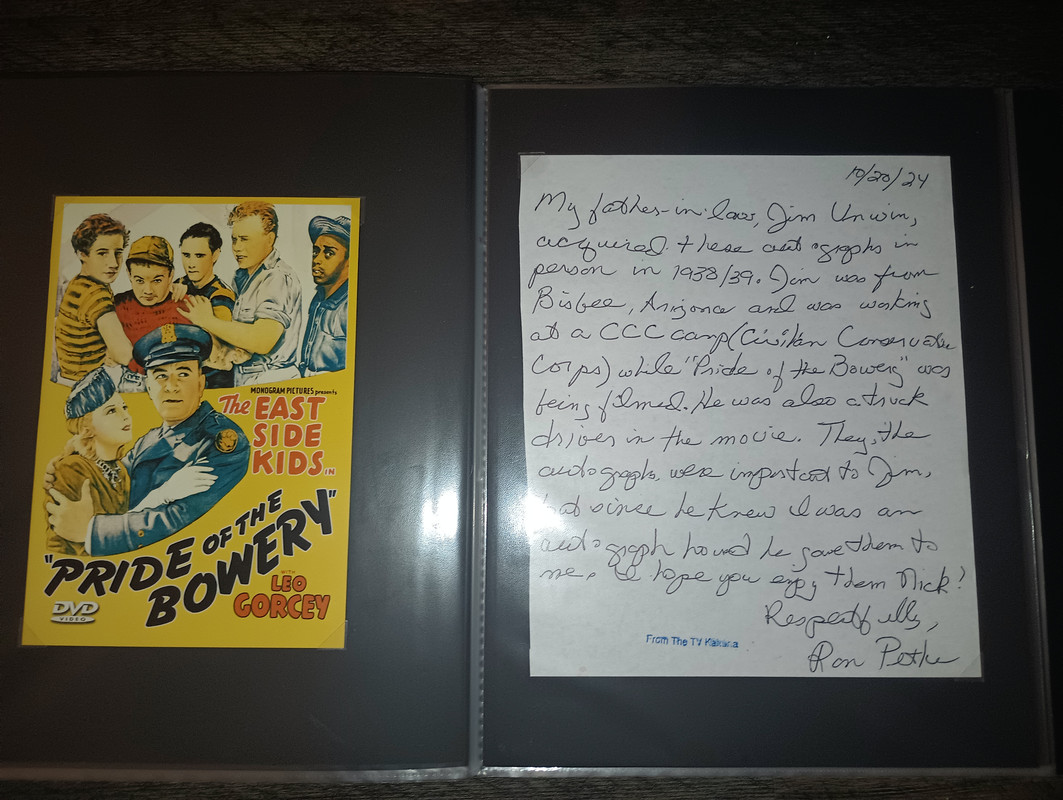 MONOGRAM PICTURES presents
The EAST
SIDE
KIDS IN
"PRIDE OF THE
BOWERY"
WITH
LEO
GORCEY
DVD
VIDEO
10/20/24
My father-in-law, Jim Unwin,
acquired these autographs in
person in 1938/39. Jim was from
Bisbee, Arizona and was working
at a CCC camp (Civilian Conservation
Corps) while "Pride of the Bowery" was
being filmed. He was also a truck
driver in the movie. They, the
autographs, were important to Jim,
but since he knew I was an
autograph hound he gave them to
me. I hope you enjoy them Nick!
Respectfully,
Ron Petke
From The TV